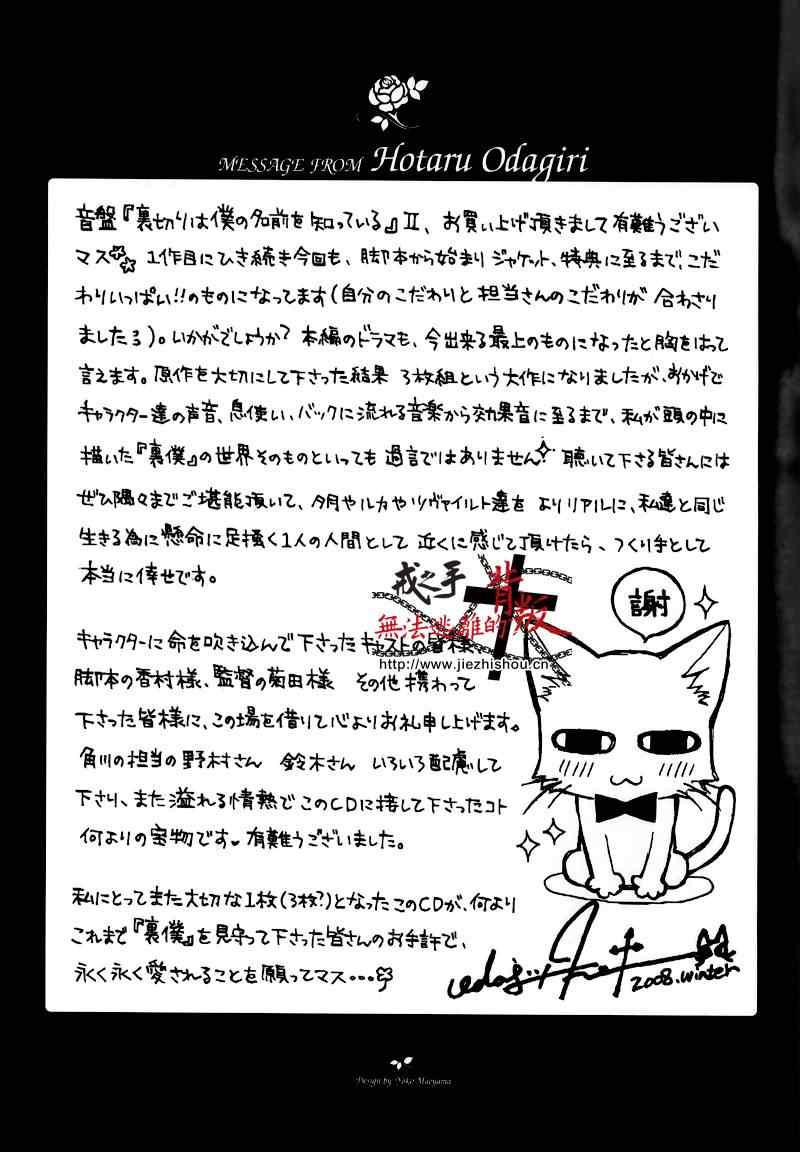 MESSAGE FROM Hotaru Odagiri
音盤『裏切りは僕の名前を知っている』Ⅱ、お買い上げ頂きまして有難うござい
マス 1作目にひき続き今回も、脚本から始まりジャケット、特典に至るまで、こだ
わりいっぱい!!のものになってます(自分のこだわりと担当さんのこだわりが合わさり
ましたろ)。いかがでしょうか?本編のドラマも、今出来る最上のものになったと胸をはって
言えます。原作を大切にして下さった結果 3枚組という大作になりましたが、おかげで
キャラクター達の声音、息使い、バックに流れる音楽から効果音に至るまで、私が頭の中に
描いた『裏僕』の世界そのものといっても過言ではありません。聴いて下さる皆さんには
ぜひ隅々までご堪能頂いて、夕月やルカやツヴァイルト達を よりリアルに、私達と同じ
生きる為に懸命に足掻く1人の人間として 近くに感じて頂けたら、つくり手として
本当に倖せです。
戒之手 背叛
無法逃離的
http://www.jiezhishou.cn
謝
キャラクターに命を吹き込んで下さったキャストの皆様
脚本の香村様、監督の菊田様 その他 携わって
下さった皆様に、この場を借りて心よりお礼申し上げます。
角川の担当の野村さん 鈴木さん いろいろ配慮して
下さり、また溢れる情熱でこのCDに接して下さったコト
何よりの宝物です♥有難うございました。
私にとってまた大切な1枚(3枚?)となったこのCDが、何より
これまで『裏僕』を見守って下さった皆さんのお手許で、
永く永く愛されることを願ってマス…
2008.winter
Design by Yoko Maeyama